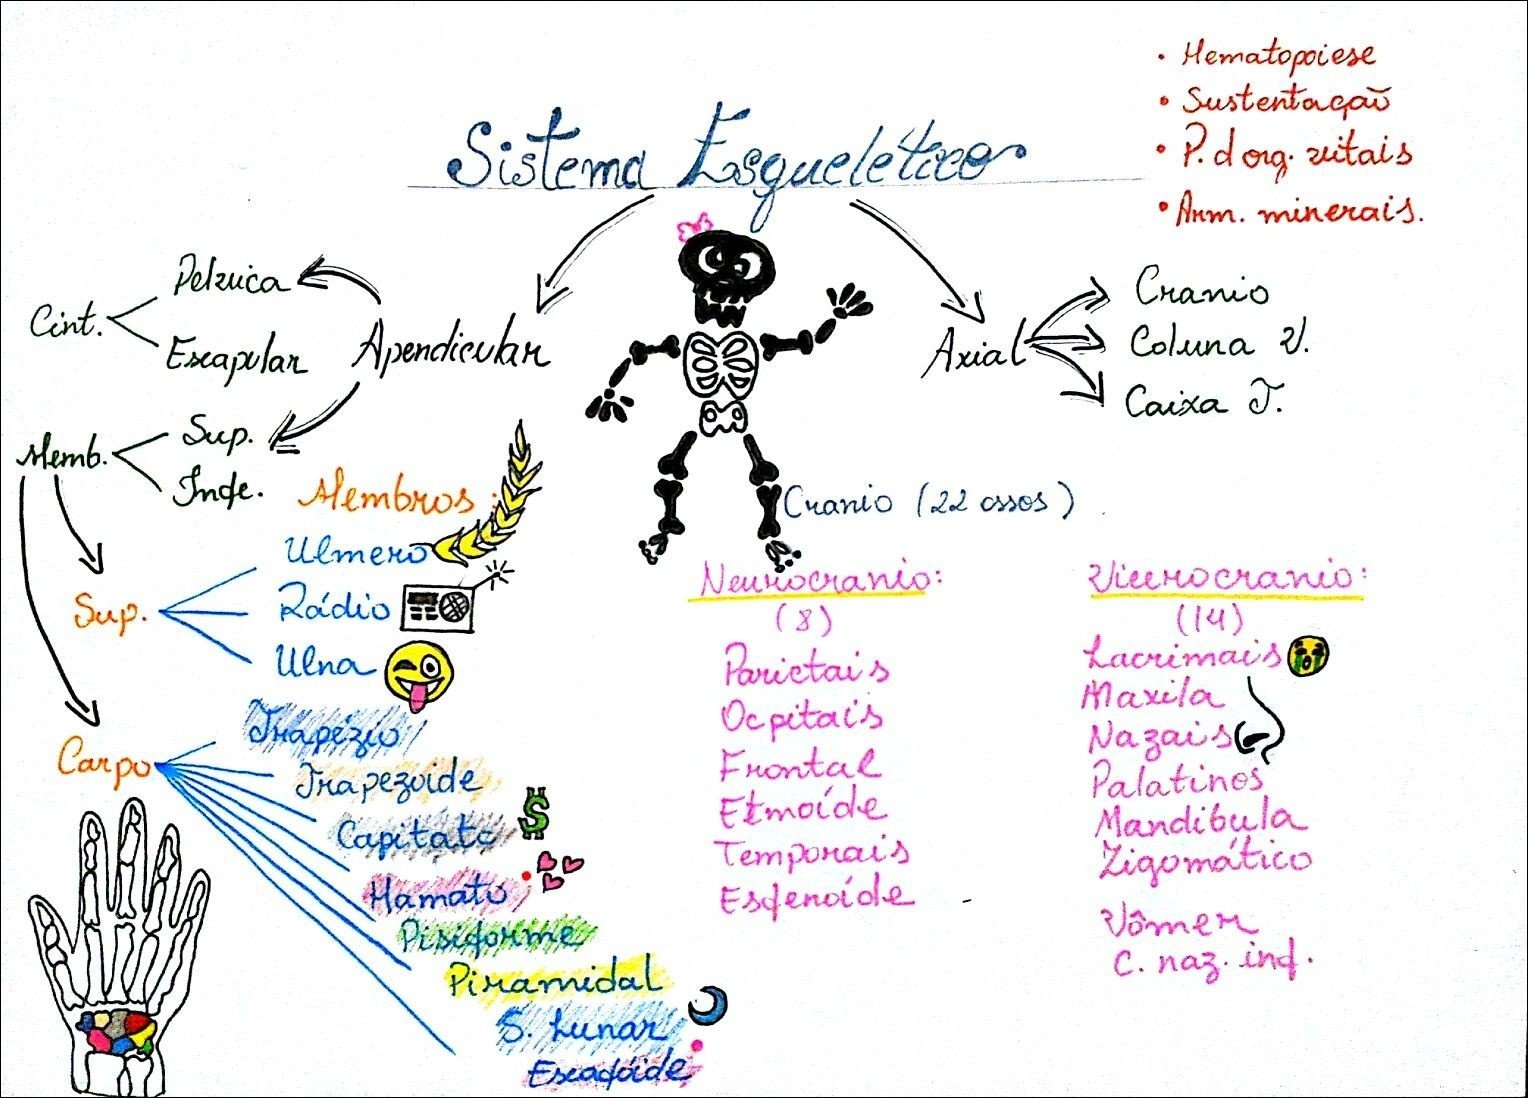 Sistema Esquelético
• Hematopoiese
• Sustentação
• P. d org. vitais
• Arm. minerais.
Apendicular
Cint.
Pelvica
Escapular
Memb.
Sup.
Infe.
Axial
Cranio
Coluna V.
Caixa T.
Membros:
Sup.
Ulmero
Rádio
Ulna
Carpo
Trapézio
Trapezoide
Capitato
$
Hamato
Pisiforme
Piramidal
S. Lunar
Escafóide
Cranio (22 ossos)
Neurocranio:
(8)
Parietais
Ocpitais
Frontal
Etmoíde
Temporais
Esfenoíde
Vicerocranio:
(14)
Lacrimais
Maxila
Nazais
Palatinos
Mandibula
Zigomático
Vômer
C. naz. inf.